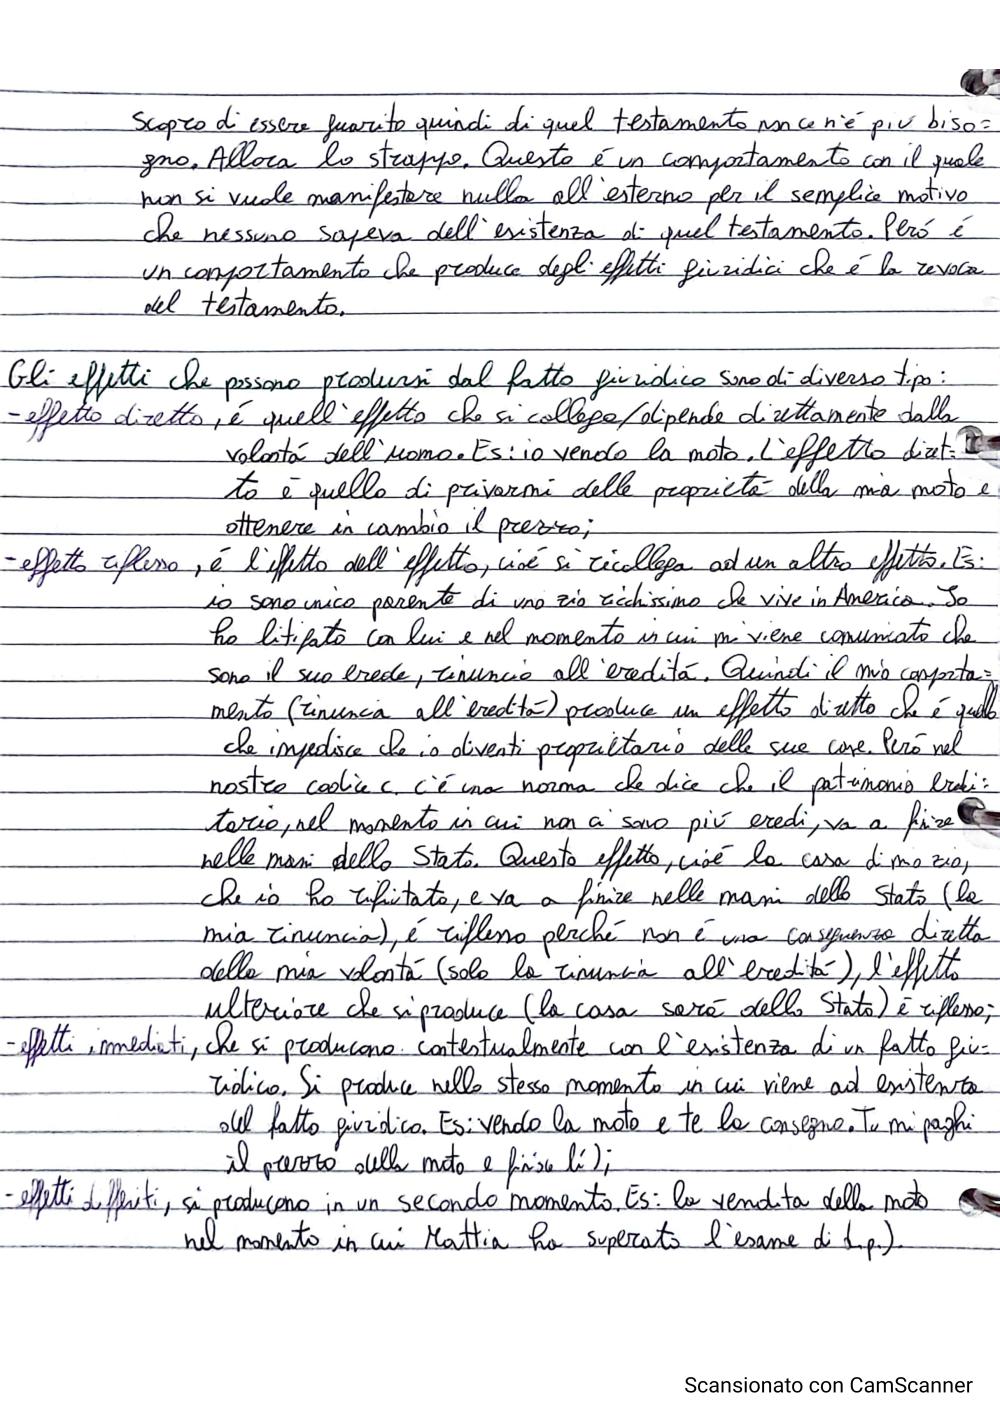 Scopro di essere guarito quindi di quel testamento non ce n'é piú biso=
gno. Allora lo strappo. Questo é un comportamento con il quale
non si vuole manifestare nulla all'esterno per il semplice motivo
che nessuno sapeva dell'esistenza di quel testamento. Peró é
un comportamento che produce degli effetti giuridici che é la revoca
del testamento.
Gli effetti che possono prodursi dal fatto giuridico sono di diverso tipo:
-effetto diretto, é quell'effetto che si collega/dipende direttamente dalla
volontá dell'uomo. Es: io vendo la moto. L'effetto diret=
to é quello di privarmi della proprietá della mia moto e
ottenere in cambio il prezzo;
-effetto riflesso, é l'effetto dell'effetto, cioé si ricollega ad un altro effetto. Es:
io sono unico parente di uno zio ricchissimo che vive in America. Io
ho litigato con lui e nel momento in cui mi viene comunicato che
sono il suo erede, rinuncio all'ereditá. Quindi il mio comporta=
mento (rinuncia all'ereditá) produce un effetto diretto che é quello
che impedisce che io diventi proprietario delle sue cose. Peró nel
nostro codice c. c'é una norma che dice che il patrimonio eredi=
tario, nel momento in cui non ci sono piú eredi, va a finire
nelle mani dello Stato. Questo effetto, cioé la casa di mio zio,
che io ho rifiutato, e va a finire nelle mani dello Stato (la
mia rinuncia), é riflesso perché non é una conseguenza diretta
della mia volontá (solo la rinuncia all'ereditá), l'effetto
ulteriore che si produce (la casa sará dello Stato) é riflesso;
-effetti immediati, che si producono contestualmente con l'esistenza di un fatto giu=
ridico. Si produce nello stesso momento in cui viene ad esistenza
del fatto giuridico. Es: vendo la moto e te la consegno. Tu mi paghi
il prezzo della moto e finisce lí);
-effetti differiti, si producono in un secondo momento. Es: la vendita della moto
nel momento in cui Mattia ha superato l'esame di d.p.).
Scansionato con CamScanner